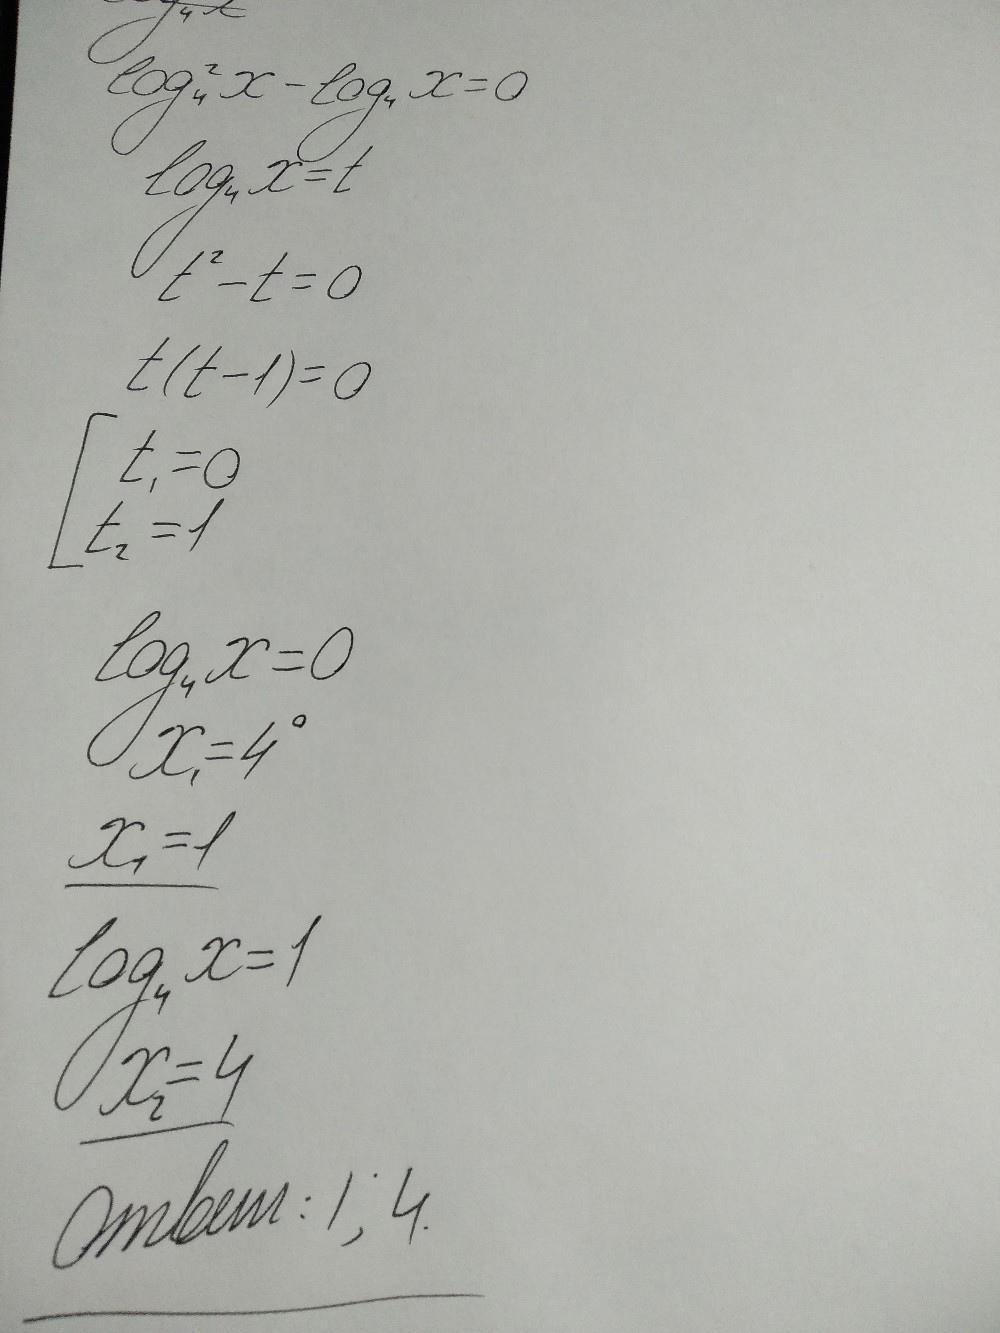 log₄²x - log₄x = 0
log₄x = t
t² - t = 0
t(t-1) = 0
t₁ = 0
t₂ = 1
log₄x = 0
x₁ = 4⁰
x₁ = 1
log₄x = 1
x₂ = 4
Ответ: 1; 4.